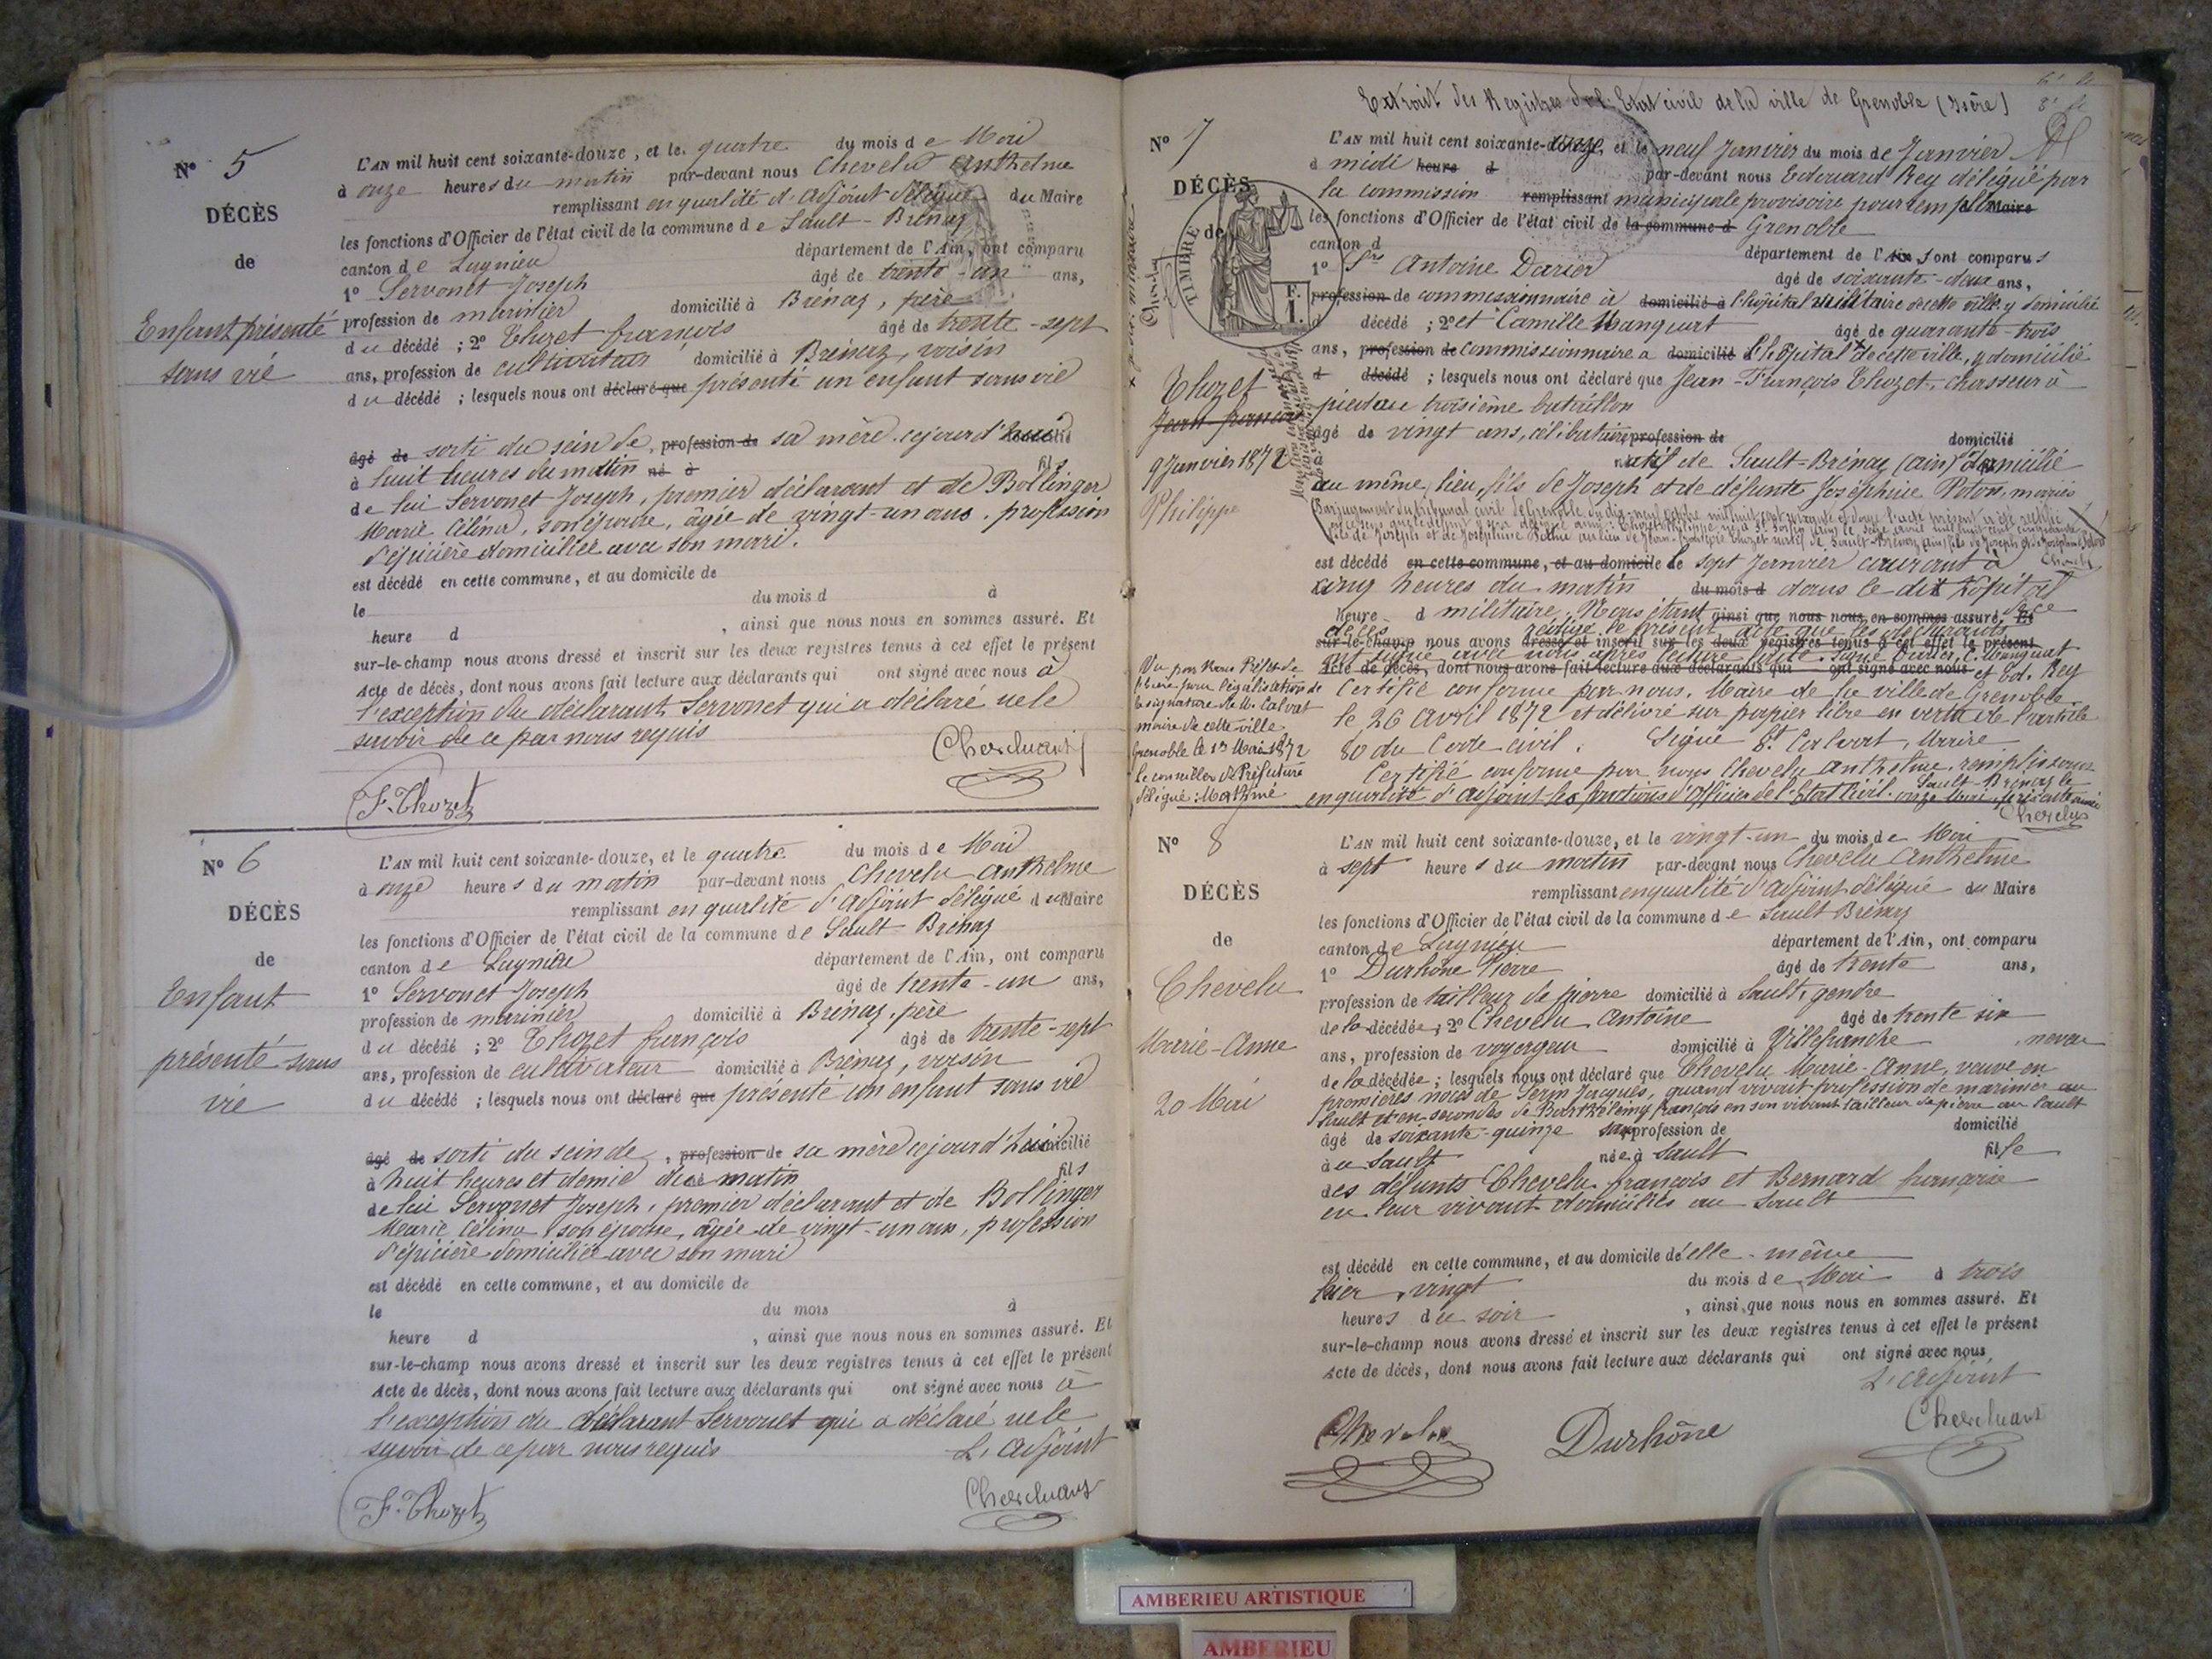 Nº 5
DÉCÈS
de
Enfant présenté
sans vie
L'AN mil huit cent soixante-douze, et le quatre du mois de Mai
à onze heures du matin par-devant nous Chevelu Anthelme
remplissant en qualité d'adjoint délégué du Maire
les fonctions d'Officier de l'état civil de la commune de Sault-Brénaz
canton de Lagnieu département de l'Ain, ont comparu
1º Servonet Joseph âgé de trente-un ans,
profession de marinier domicilié à Brénaz, père
du décédé ; 2º Thozet françois âgé de trente-sept
ans, profession de cultivateur domicilié à Brénaz, voisin
du décédé ; lesquels nous ont déclaré que présenté un enfant sans vie
âgé de sorti du sein de, profession de sa mère cejourd'hui
à huit heures du matin né à fils
de lui Servonet Joseph, premier déclarant et de Bollinger
Marie Célina, son épouse, âgée de vingt-un ans, profession
d'épicière domiciliée avec son mari.
est décédé en cette commune, et au domicile de
le du mois d à
heure d , ainsi que nous nous en sommes assuré. Et
sur-le-champ nous avons dressé et inscrit sur les deux registres tenus à cet effet le présent
Acte de décès, dont nous avons fait lecture aux déclarants qui ont signé avec nous à
l'exception du déclarant Servonet qui a déclaré ne le
savoir de ce par nous requis
F. Thozet
Nº 6
DÉCÈS
de
Enfant
présenté sans
vie
L'AN mil huit cent soixante-douze, et le quatre du mois de Mai
à onze heures du matin par-devant nous Chevelu Anthelme
remplissant en qualité d'adjoint délégué du Maire
les fonctions d'Officier de l'état civil de la commune de Sault-Brénaz
canton de Lagnieu département de l'Ain, ont comparu
1º Servonet Joseph âgé de trente-un ans,
profession de marinier domicilié à Brénaz, père
du décédé ; 2º Thozet françois âgé de trente-sept
ans, profession de cultivateur domicilié à Brénaz, voisin
du décédé ; lesquels nous ont déclaré que présenté un enfant sans vie
âgé de sorti du sein de, profession de sa mère cejourd'hui domicilié
à huit heures et demie du matin fils
de lui Servonet Joseph, premier déclarant et de Bollinger
Marie Célina, son épouse, âgée de vingt-un ans, profession
d'épicière domiciliée avec son mari
est décédé en cette commune, et au domicile de
le du mois à
heure d , ainsi que nous nous en sommes assuré. Et
sur-le-champ nous avons dressé et inscrit sur les deux registres tenus à cet effet le présent
Acte de décès, dont nous avons fait lecture aux déclarants qui ont signé avec nous à
l'exception du déclarant Servonet qui a déclaré ne le
savoir de ce par nous requis L'adjoint
F. Thozet
Extrait des Registres de l'Etat civil de la ville de Grenoble (Isère)
Nº 7
DÉCÈS
de
TIMBRE
F.
1.
Thozet
Jean françois
9 Janvier 1872
Philippe
L'AN mil huit cent soixante-douze, et le neuf Janvier du mois de Janvier
à midi heure d par-devant nous Edouard Rey délégué par
la commission remplissant municipale provisoire pour remplir Maire
les fonctions d'Officier de l'état civil de la commune d Grenoble
canton d département de l'Ain sont comparus
1º Srs Antoine Darier âgé de soixante-deux ans,
profession de commissionnaire à domicilié à l'hôpital militaire de cette ville y domicilié
d décédé ; 2º et Camille Manquat âgé de quarante-trois
ans, profession de commissionnaire à domicilié l'hôpital de cette ville, y domicilié
d décédé ; lesquels nous ont déclaré que Jean-François Thozet, chasseur à
pied au troisième bataillon
âgé de vingt ans, célibataire profession de domicilié
à natif de Sault-Brénaz (ain) domicilié
au même lieu, fils de Joseph et de défunte Joséphine Poton, mariés
Par jugement du tribunal civil de Grenoble du dix-neuf octobre mil huit cent soixante et douze l'acte présent a été rectifié
est décédé en cette commune, et au domicile de le sept Janvier courant à
cinq heures du matin du mois d dans le dit hôpital
heure d militaire. Nous étant ainsi que nous nous en sommes assuré, de ce Et
décès rédigé le présent acte que les déclarants
sur-le-champ nous avons dressé et inscrit sur les deux registres tenus à cet effet le présent
ont signé avec nous après lecture faite. Signé Darier, C. Manquat
Acte de décès, dont nous avons fait lecture aux déclarants qui ont signé avec nous et Ed. Rey
Certifié conforme par nous, Maire de la ville de Grenoble
le 26 avril 1872 et délivré sur papier libre en vertu de l'article
80 du Code civil. Signé Calvat, Maire
Certifié conforme par nous Chevelu Anthelme, remplissant
en qualité d'adjoint les fonctions d'Officier de l'Etat Civil. Sault-Brénaz le onze Mai, présente année
Vu par Nous Préfet de
l'Isère pour légalisation de
la signature de M. Calvat
maire de cette ville
Grenoble le 1er Mai 1872
le conseiller de Préfecture
délégué :
Nº 8
DÉCÈS
de
Chevelu
Marie-Anne
20 Mai
L'AN mil huit cent soixante-douze, et le vingt-un du mois de Mai
à sept heures du matin par-devant nous Chevelu Anthelme
remplissant en qualité d'adjoint délégué du Maire
les fonctions d'Officier de l'état civil de la commune de Sault Brénaz
canton de Lagnieu département de l'Ain, ont comparu
1º Durhône Pierre âgé de trente ans,
profession de tailleur de pierre domicilié à Sault, gendre
de la décédée ; 2º Chevelu Antoine âgé de trente six
ans, profession de voyageur domicilié à Villefranche, neveu
de la décédée ; lesquels nous ont déclaré que Chevelu Marie-Anne, veuve en
premières noces de Serin Jacques, quand vivait profession de marinier au
Sault et en secondes de Barthélemy françois en son vivant tailleur de pierre au Sault
âgé de soixante-quinze sans profession de domicilié
à au Sault née à Sault fille
des défunts Chevelu françois et Bernard françoise
en leur vivant domiciliés au Sault
est décédé en cette commune, et au domicile d'elle-même
hier, vingt du mois de Mai à trois
heures du soir , ainsi que nous nous en sommes assuré. Et
sur-le-champ nous avons dressé et inscrit sur les deux registres tenus à cet effet le présent
Acte de décès, dont nous avons fait lecture aux déclarants qui ont signé avec nous
L'adjoint
Chevelu Durhône
AMBERIEU ARTISTIQUE
AMBERIEU